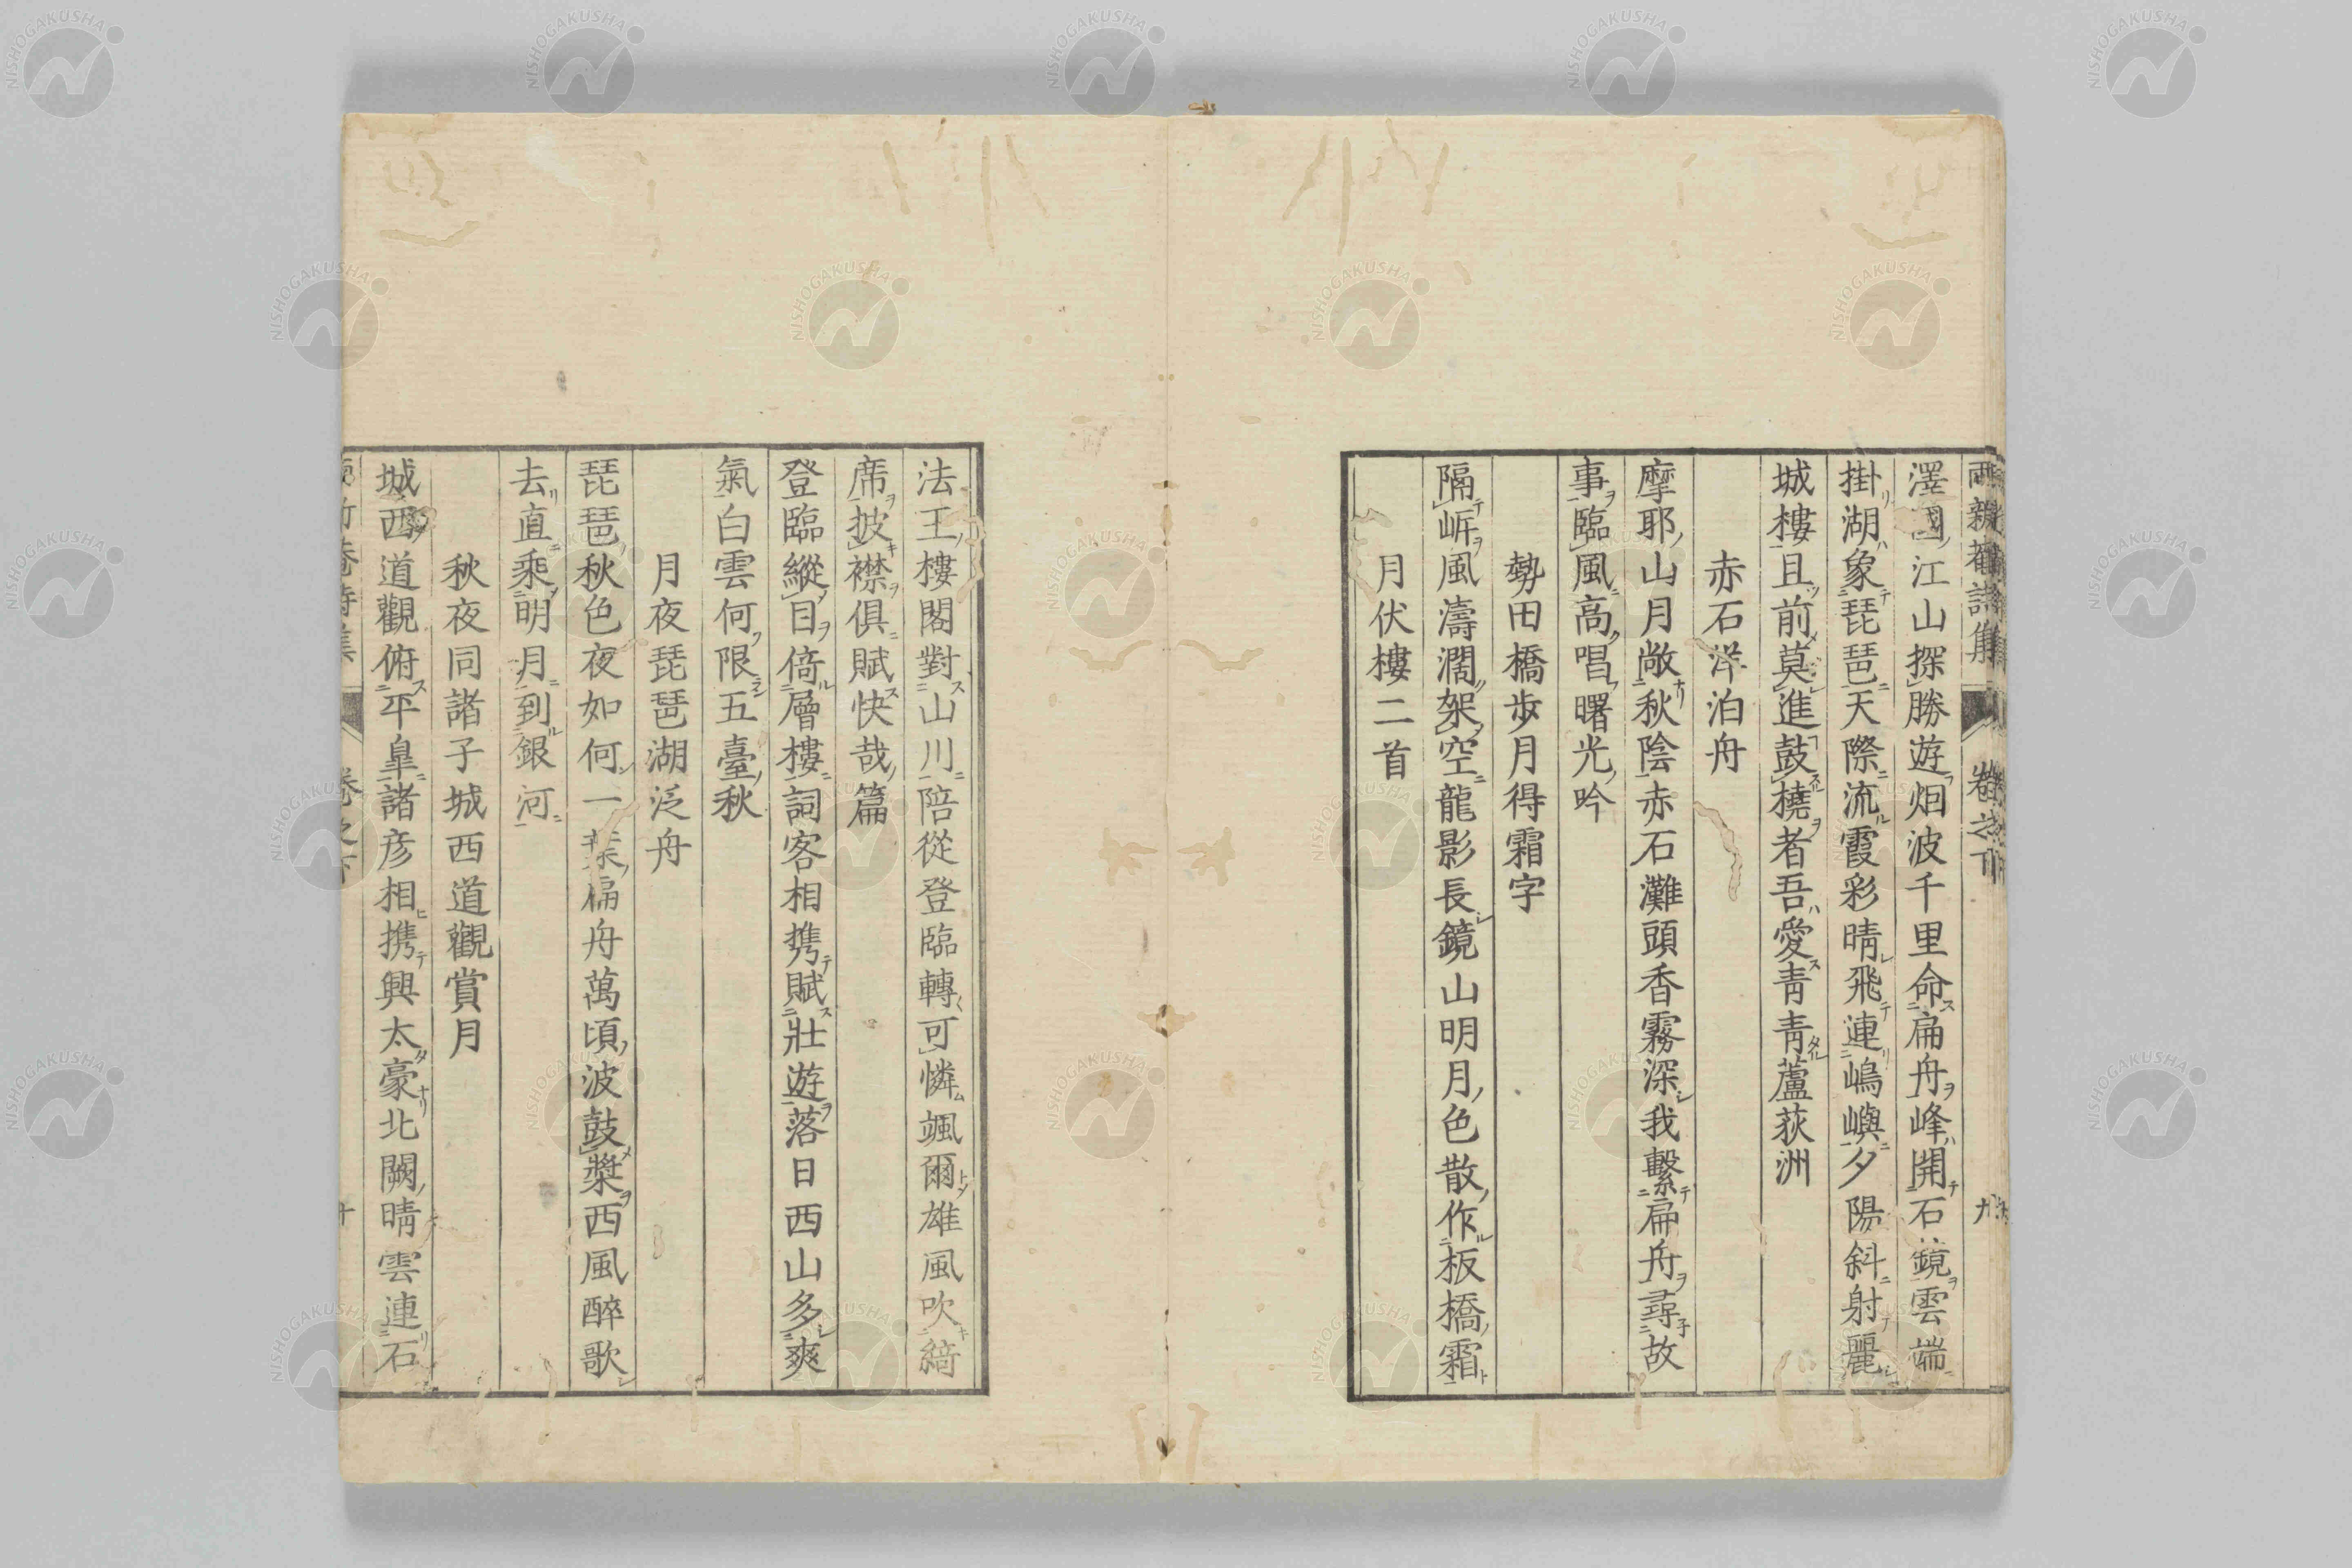 澤國江山探勝遊烟波千里命扁舟峰開石鏡雲端
掛湖象琵琶天際流霞彩晴飛連嶋嶼夕陽斜射麗
城樓且前莫進鼓橈者吾愛青青蘆荻洲
赤石洋泊舟
摩耶山月敞秋陰赤石灘頭香霧深我繫扁舟尋故
事臨風高唱曙光吟
勢田橋步月得霜字
隔岸風濤濶架空龍影長鏡山明月色散作板橋霜
月伏樓二首
法王樓閣對山川陪從登臨轉可憐颯爾雄風吹綺
席披襟俱賦快哉篇
登臨縱目倚層樓詞客相携賦壯遊落日西山多爽
氣白雲何限五臺秋
月夜琵琶湖泛舟
琵琶秋色夜如何一葉扁舟萬頃波鼓槳西風醉歌
去直乘明月到銀河
秋夜同諸子城西道觀賞月
城西道觀俯平皐諸彦相携興太豪北闕晴雲連石
卷之下
NISHOGAKUSHA